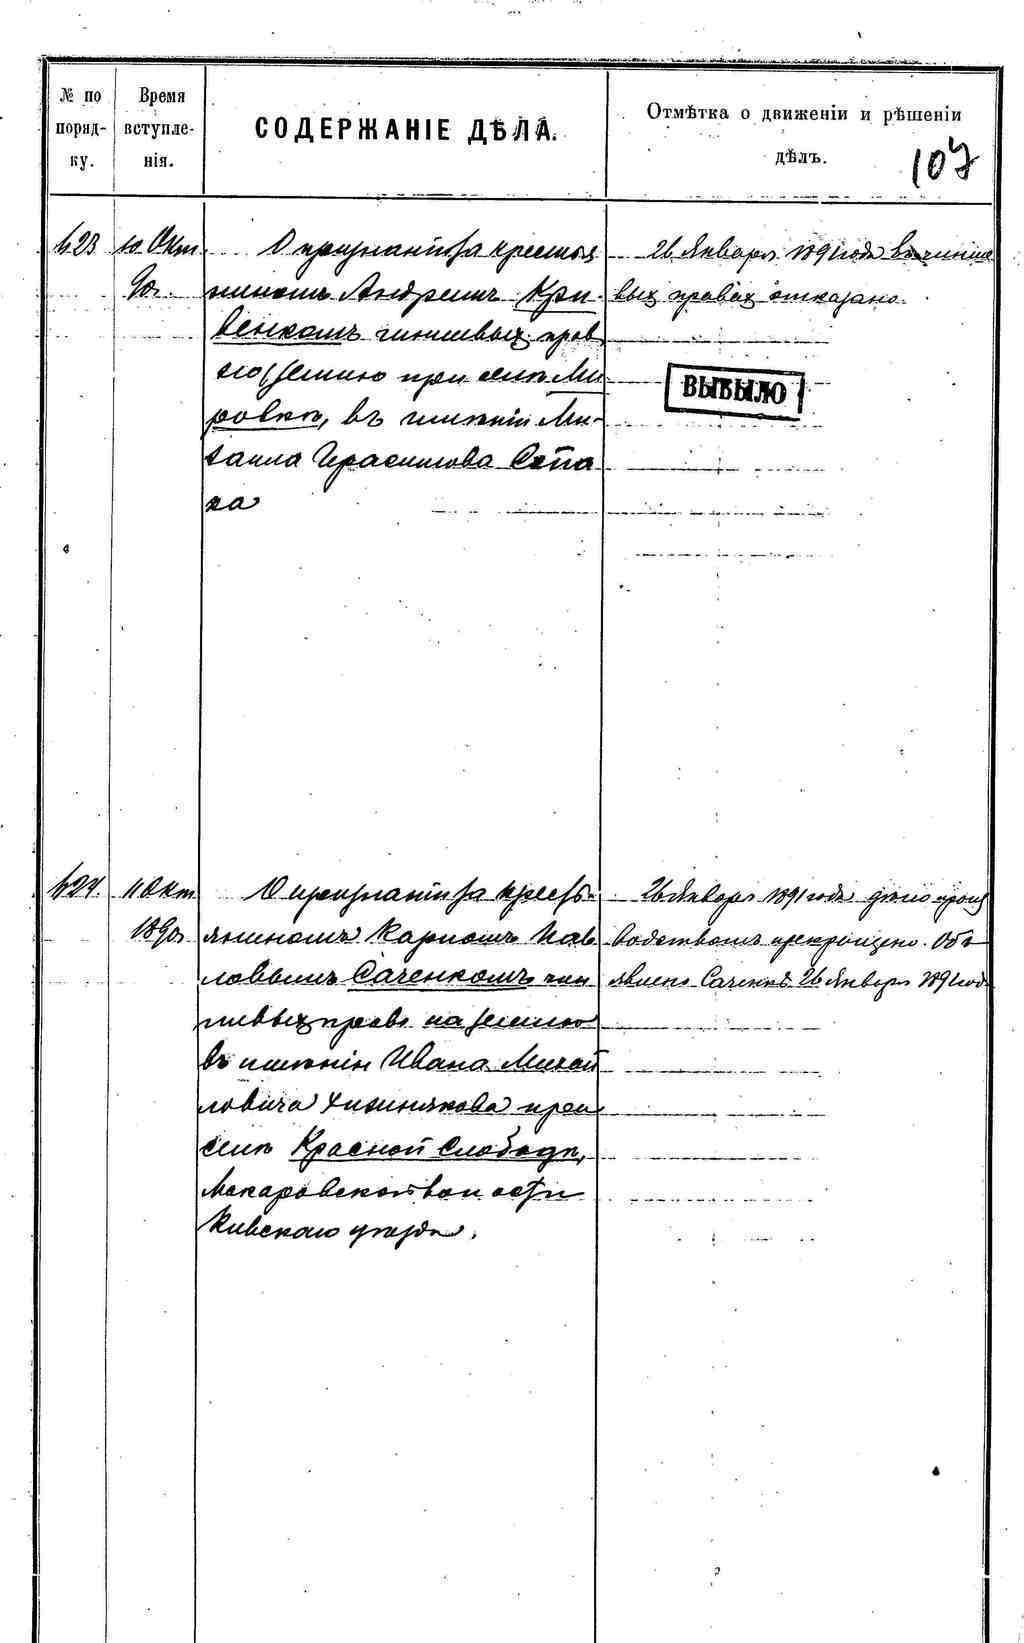 № по порядку.
Время вступленія.
СОДЕРЖАНІЕ ДѢЛА.
Отмѣтка о движеніи и рѣшеніи дѣлъ.
107
423
10 Окт
90г.
О признаніи за крестья
ниномъ Андреемъ Кри
венкомъ чиншевыхъ правъ
на землю при селѣ Ми
ровкѣ, въ имѣніи Ми
хаила Герасимова
ка
26 Января 1891 года въ чинше
выхъ правахъ отказано.
ВЫБЫЛО
424.
11 Окт
1890г
О признаніи за кресть
яниномъ Карпомъ Пав
ловымъ Саченкомъ чин
шевыхъ правъ на землю
въ имѣніи Ивана Михай
ловича при
селѣ Красной Слободѣ,
Макаровской волости
Кіевскаго уѣзда.
26 Января 1891 года дѣло произ
водствомъ прекращено. Объ
явлено Саченкѣ 26 Января 1891 года